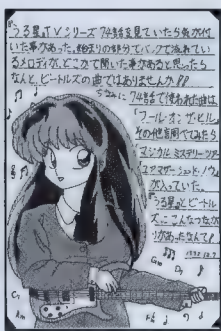 『うる星』TVシリーズ 74話を見ていたら気が付
いた事があった。始まりの部分でバックで流れてい
るメロディが、どこかで聞いた事があると思ったら
なんと、ビートルズの曲ではありませんか!!
ちなみに 74話で使われた曲は
「フール・オン・ザ・ヒル」
その他
マジカル ミステリーツアー
ユア マザー シュッド ノウ
が入っていた。
『うる星』とビートル
ズにこんなつなが
りがあったなんて!
1992.10.7
Gm
D7
C7
Am